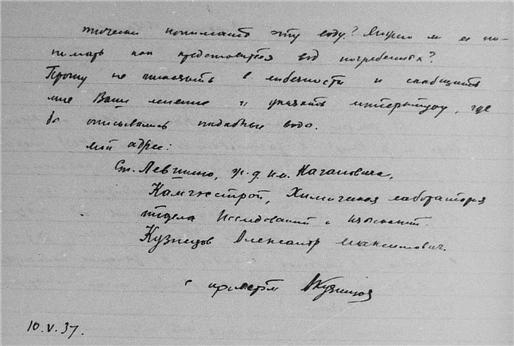 эту воду? Можно ли ее по-
нимать как представителя вод погребенных?
Прошу не отказать в любезности и сообщить
мне Ваше мнение и указать литературу, где
бы описывались подобные воды.
Мой адрес:
Ст. Левшино, ж. д. им. Кагановича,
Камгэсстрой, Химическая лаборатория
отдела Исследований и изысканий.
Кузнецов Александр Максимович.
с приветом АКузнецов
10.V.37.